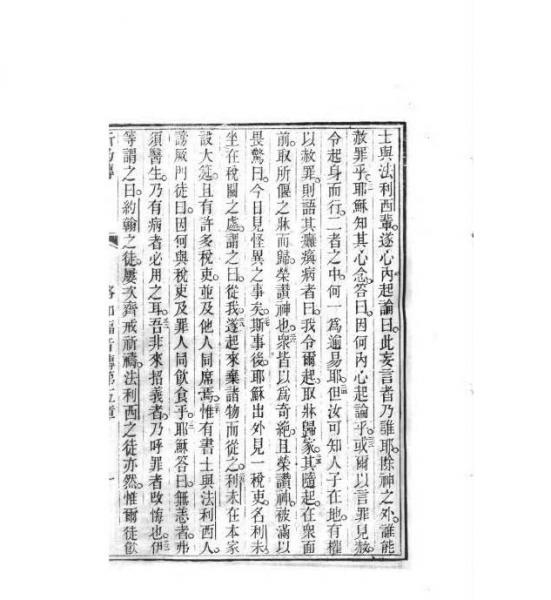 士與法利西輩遂心內起論曰此妄言者乃誰耶除神之外誰能
赦罪乎耶穌知其心念答曰因何內心起論乎或爾以言罪見赦
令起身而行二者之中何一爲逾易耶但汝可知人子在地有權
以赦罪則語其癱瘓病者曰我令爾起取牀歸家其隨起在衆面
前取所偃之牀而歸榮讚神也衆皆以爲奇絕且榮讚神被滿以
畏驚曰今日見怪異之事矣斯事後耶穌出外見一稅吏名利未
坐在稅關之處謂之曰從我遂起來棄諸物而從之利未在本家
設大筵且有許多稅吏並及他人同席焉惟有書士與法利西人
謗厥門徒曰因何與稅吏及罪人同飲食乎耶穌答曰無恙者弗
須醫生乃有病者必用之耳吾非來招義者乃呼罪者改悔也伊
等謂之曰約翰之徒屢次齊戒祈禱法利西之徒亦然惟爾徒飲
路加福音傳第五章